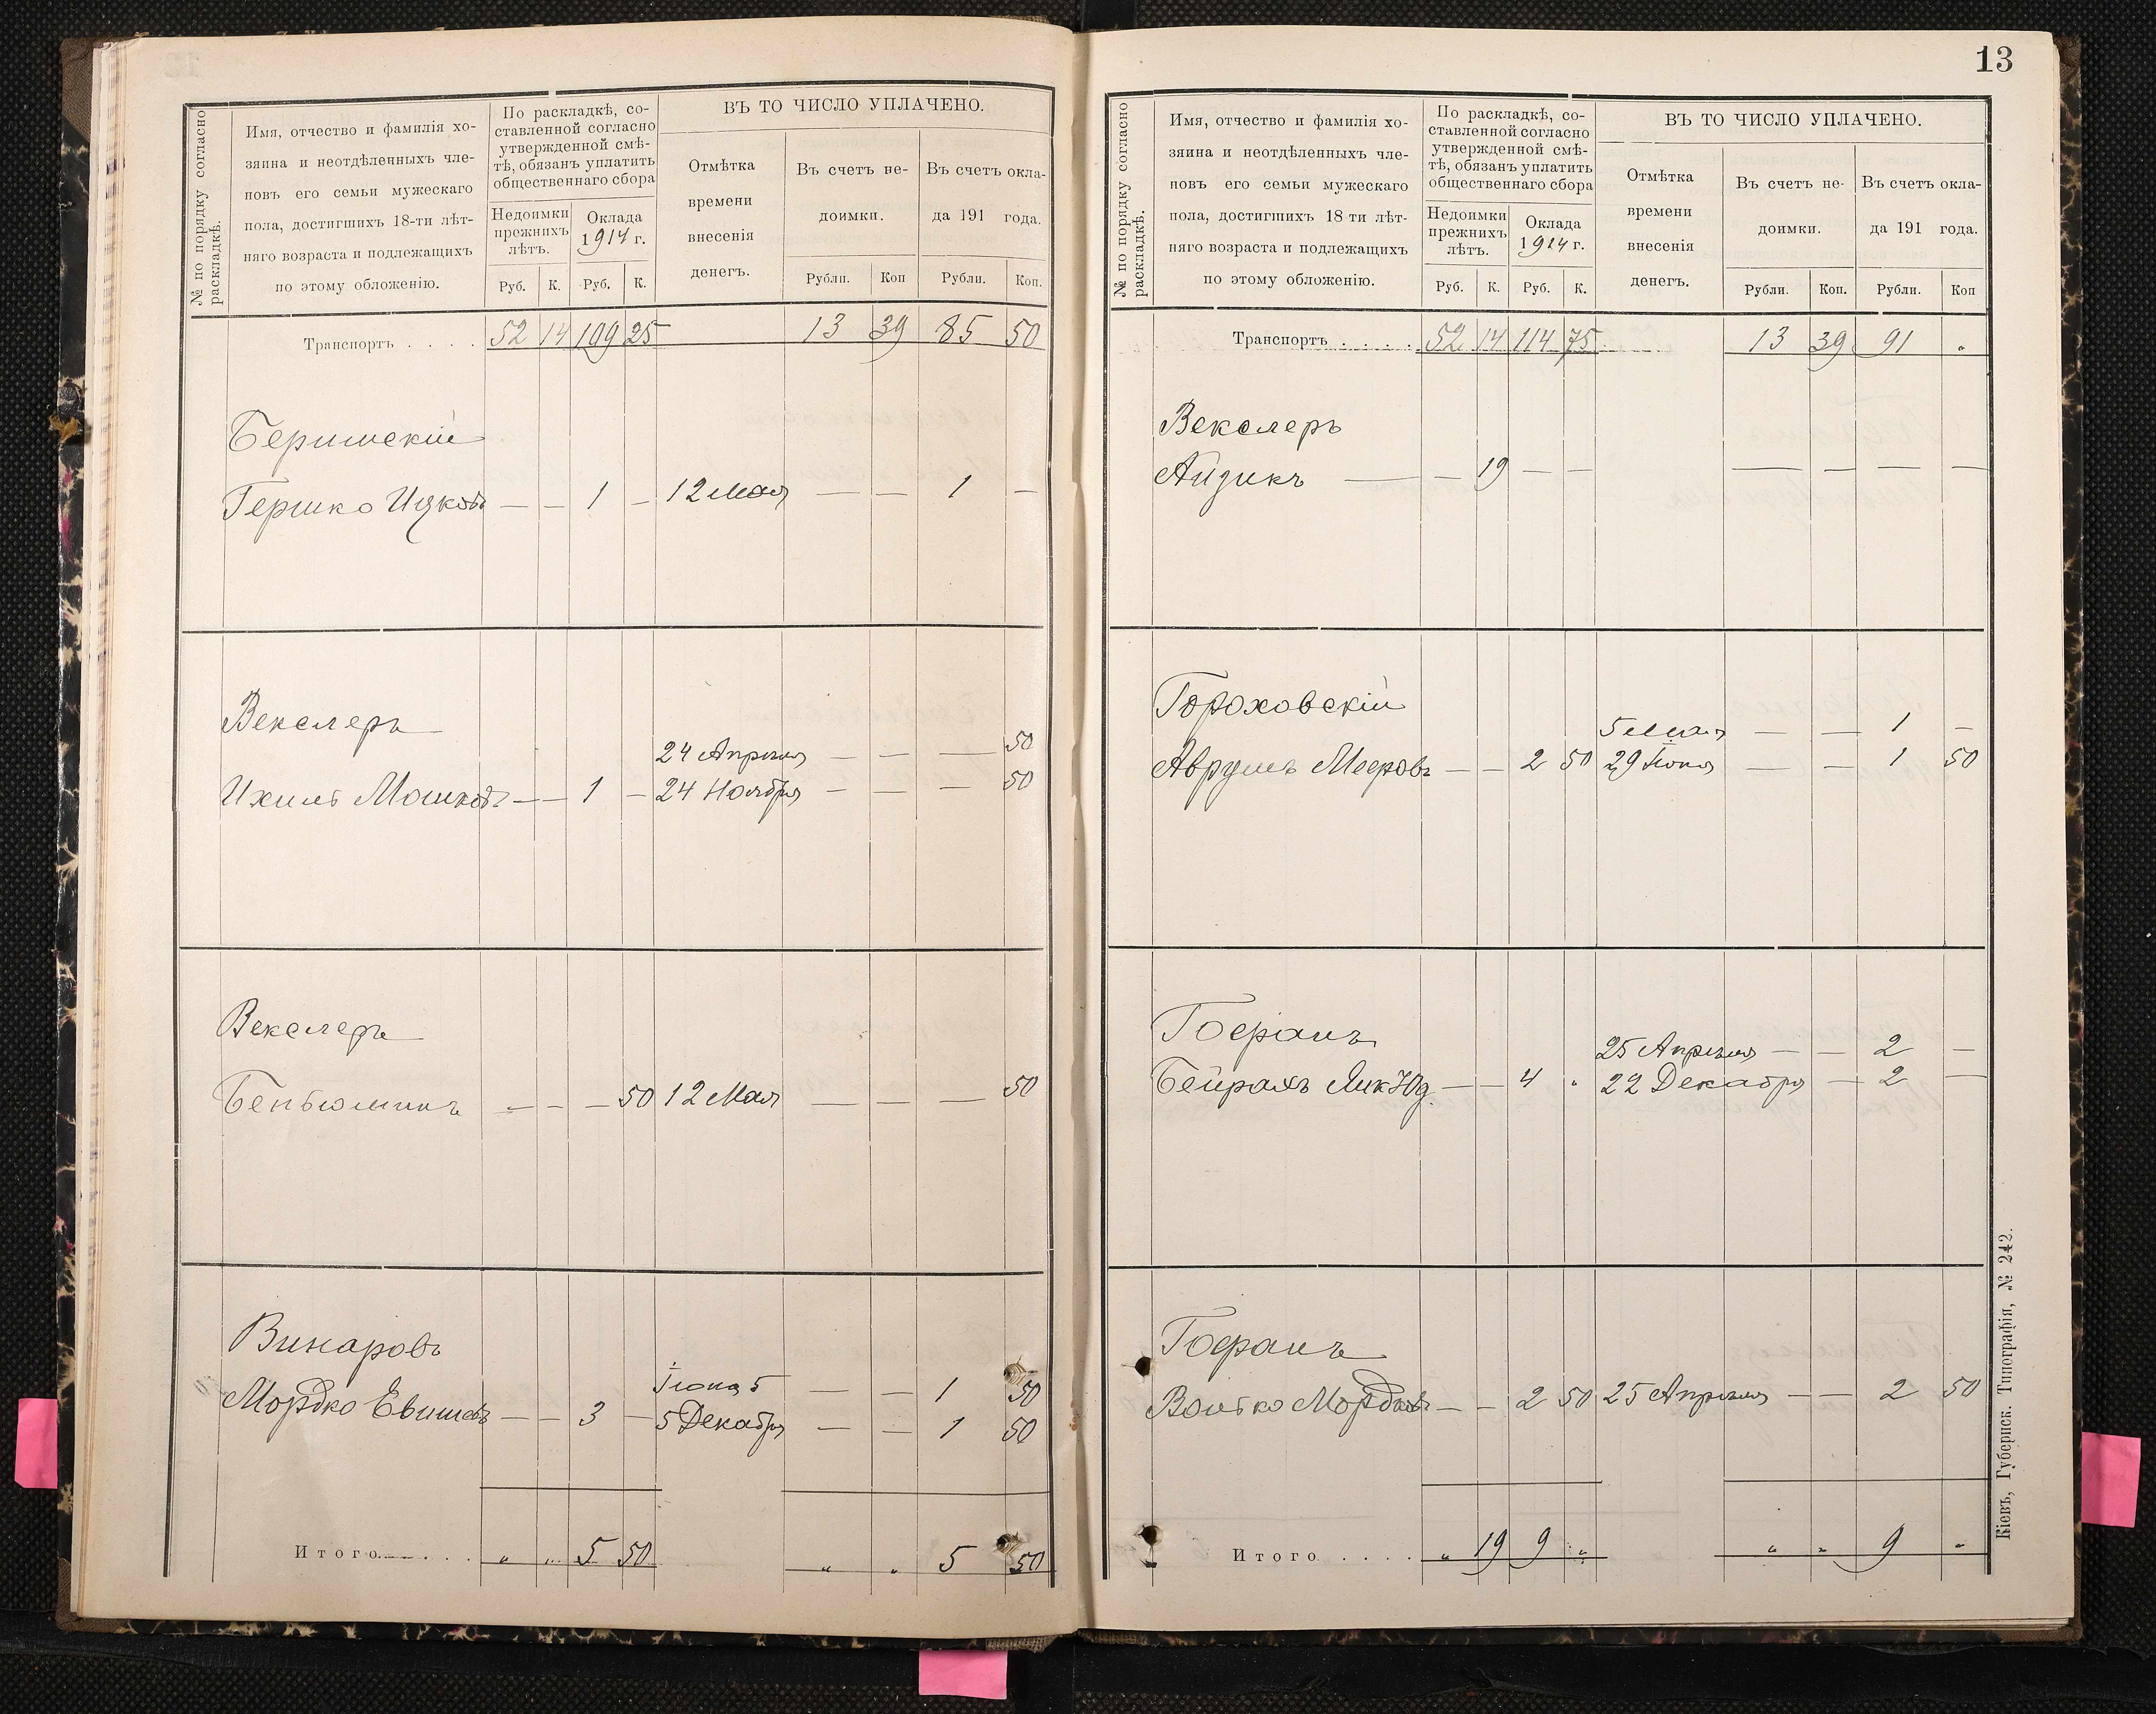 № по порядку согласно раскладкѣ.
Имя, отчество и фамилія хо-
зяина и неотдѣленныхъ чле-
новъ его семьи мужескаго
пола, достигшихъ 18-ти лѣт-
няго возраста и подлежащихъ
по этому обложенію.
По раскладкѣ, со-
ставленной согласно
утвержденной смѣ-
тѣ, обязанъ уплатить
общественнаго сбора
Недоимки
прежнихъ
лѣтъ.
Оклада
1914 г.
Руб. К. Руб. К.
ВЪ ТО ЧИСЛО УПЛАЧЕНО.
Отмѣтка
времени
внесенія
денегъ.
Въ счетъ не-
доимки.
Въ счетъ окла-
да 191 года.
Рубли. Коп Рубли. Коп.
Транспортъ . . . . 52 14 109 25 13 39 85 50
Беришскій
Гершко Ицковъ — — 1 — 12 Мая — — 1 —
Векслеръ
24 Апрѣля — — — 50
Ихиль Мошковъ — — 1 — 24 Ноября — — — 50
Векслеръ
Беньюминъ — — — 50 12 Мая — — — 50
Винаровъ
Іюня 5 — — 1 50
Мордко Евшиевъ — — 3 — 5 Декабря — — 1 50
Итого . . . . „ „ 5 50 „ „ 5 50
13
№ по порядку согласно раскладкѣ.
Имя, отчество и фамилія хо-
зяина и неотдѣленныхъ чле-
новъ его семьи мужескаго
пола, достигшихъ 18 ти лѣт-
няго возраста и подлежащихъ
по этому обложенію.
По раскладкѣ, со-
ставленной согласно
утвержденной смѣ-
тѣ, обязанъ уплатить
общественнаго сбора
Недоимки
прежнихъ
лѣтъ.
Оклада
1914 г.
Руб. К. Руб. К.
ВЪ ТО ЧИСЛО УПЛАЧЕНО.
Отмѣтка
времени
внесенія
денегъ.
Въ счетъ не-
доимки.
Въ счетъ окла-
да 191 года.
Рубли. Коп. Рубли. Коп
Транспортъ . . . . 52 14 114 75 13 39 91 „
Векслеръ
Айзикъ — — 19 — — — — — —
Гороховскій
5 Мая — — 1 —
Аврумъ Мееровъ — — 2 50 29 Іюня — — 1 50
Гофранъ
25 Апрѣля — — 2 —
Бейрахъ Лик Юд. — — 4 „ 22 Декабря — — 2 —
Гофранъ
Волько Мордковъ — — 2 50 25 Апрѣля — — 2 50
Итого . . . . „ 19 9 „ „ „ 9 „
Кіевъ, Губернск. Типографія, № 242.